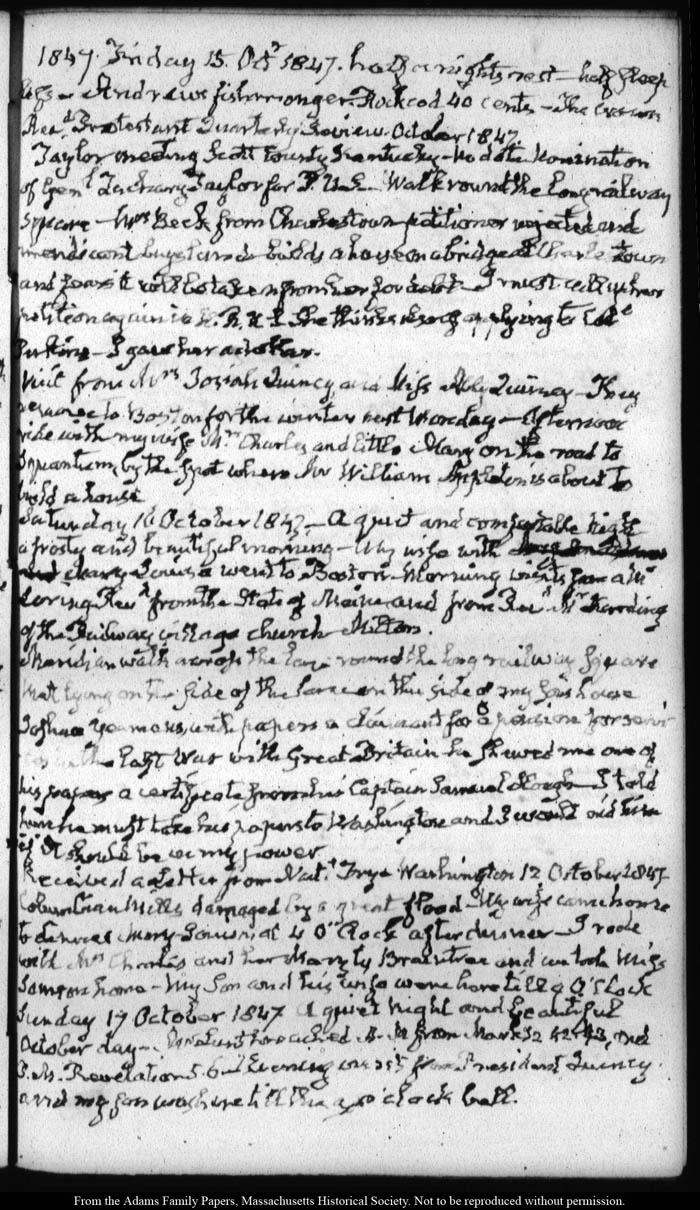 1847. Friday 15. Octr 1847. half a nights rest — half sleep
Andrews fishmonger. Rockcod 40 cents — The
Protestant Quarterly Review. October 1847
Taylor meeting Scott County Kentucky — No date Nomination
of Genl. Zachary Taylor for P. U.S. — Walk round the long railway
square — Mrs Beck from Charlestown petitioner rejected and
mendicant buys land builds a house on a bridge at Charlestown
and fears it will be taken from her for debt — I must call up her
petition again in H. R. U.S. She thinks of applying to
Perkins — I gave her a dollar.
Visit from Mrs Josiah Quincy, and Miss Abby Quincy — They
remove to Boston for the winter next Monday — Afternoon
ride with my wife Mrs Charles and little Mary on the road to
Squantum, by the spot where Mr William Appleton is about to
build a house
Saturday 16 October 1847 — A quiet and comfortable night
a frosty and beautiful morning — My wife with
Mary Louisa went to Boston. Morning visits from a Mr
Loring Revd. from the State of Maine and from Revd. Mr
of the Railway village church Milton.
Meridian walk across the lane round the long railway square
Met lying on the side of the lane on this side of my
Joshua Yeomans, with papers a claimant for a pension for
in the last War with Great Britain he shewed me one of
his papers a certificate from his Captain Samuel I told
him he must take his papers to Washington and I would aid him
if it should be in my power
Received a letter from Natl. Frye Washington 12 October 1847
Columbian Mills damaged by a great flood — My wife came home
to dinner Mary Louisa at 4 O'Clock after dinner — I rode
with Mrs Charles and her Mary by Braintree and we took Miss
home — My Son and his wife were here till 9 O'Clock
Sunday 17 October 1847 A quiet Night and beautiful
October day — Mr Lunt preached A. M. from Mark 12 42-43, and
P. M. Revelation 5. 6 Evening visit from President Quincy.
and my son was here till the 9 o'clock bell.
From the Adams Family Papers, Massachusetts Historical Society. Not to be reproduced without permission.